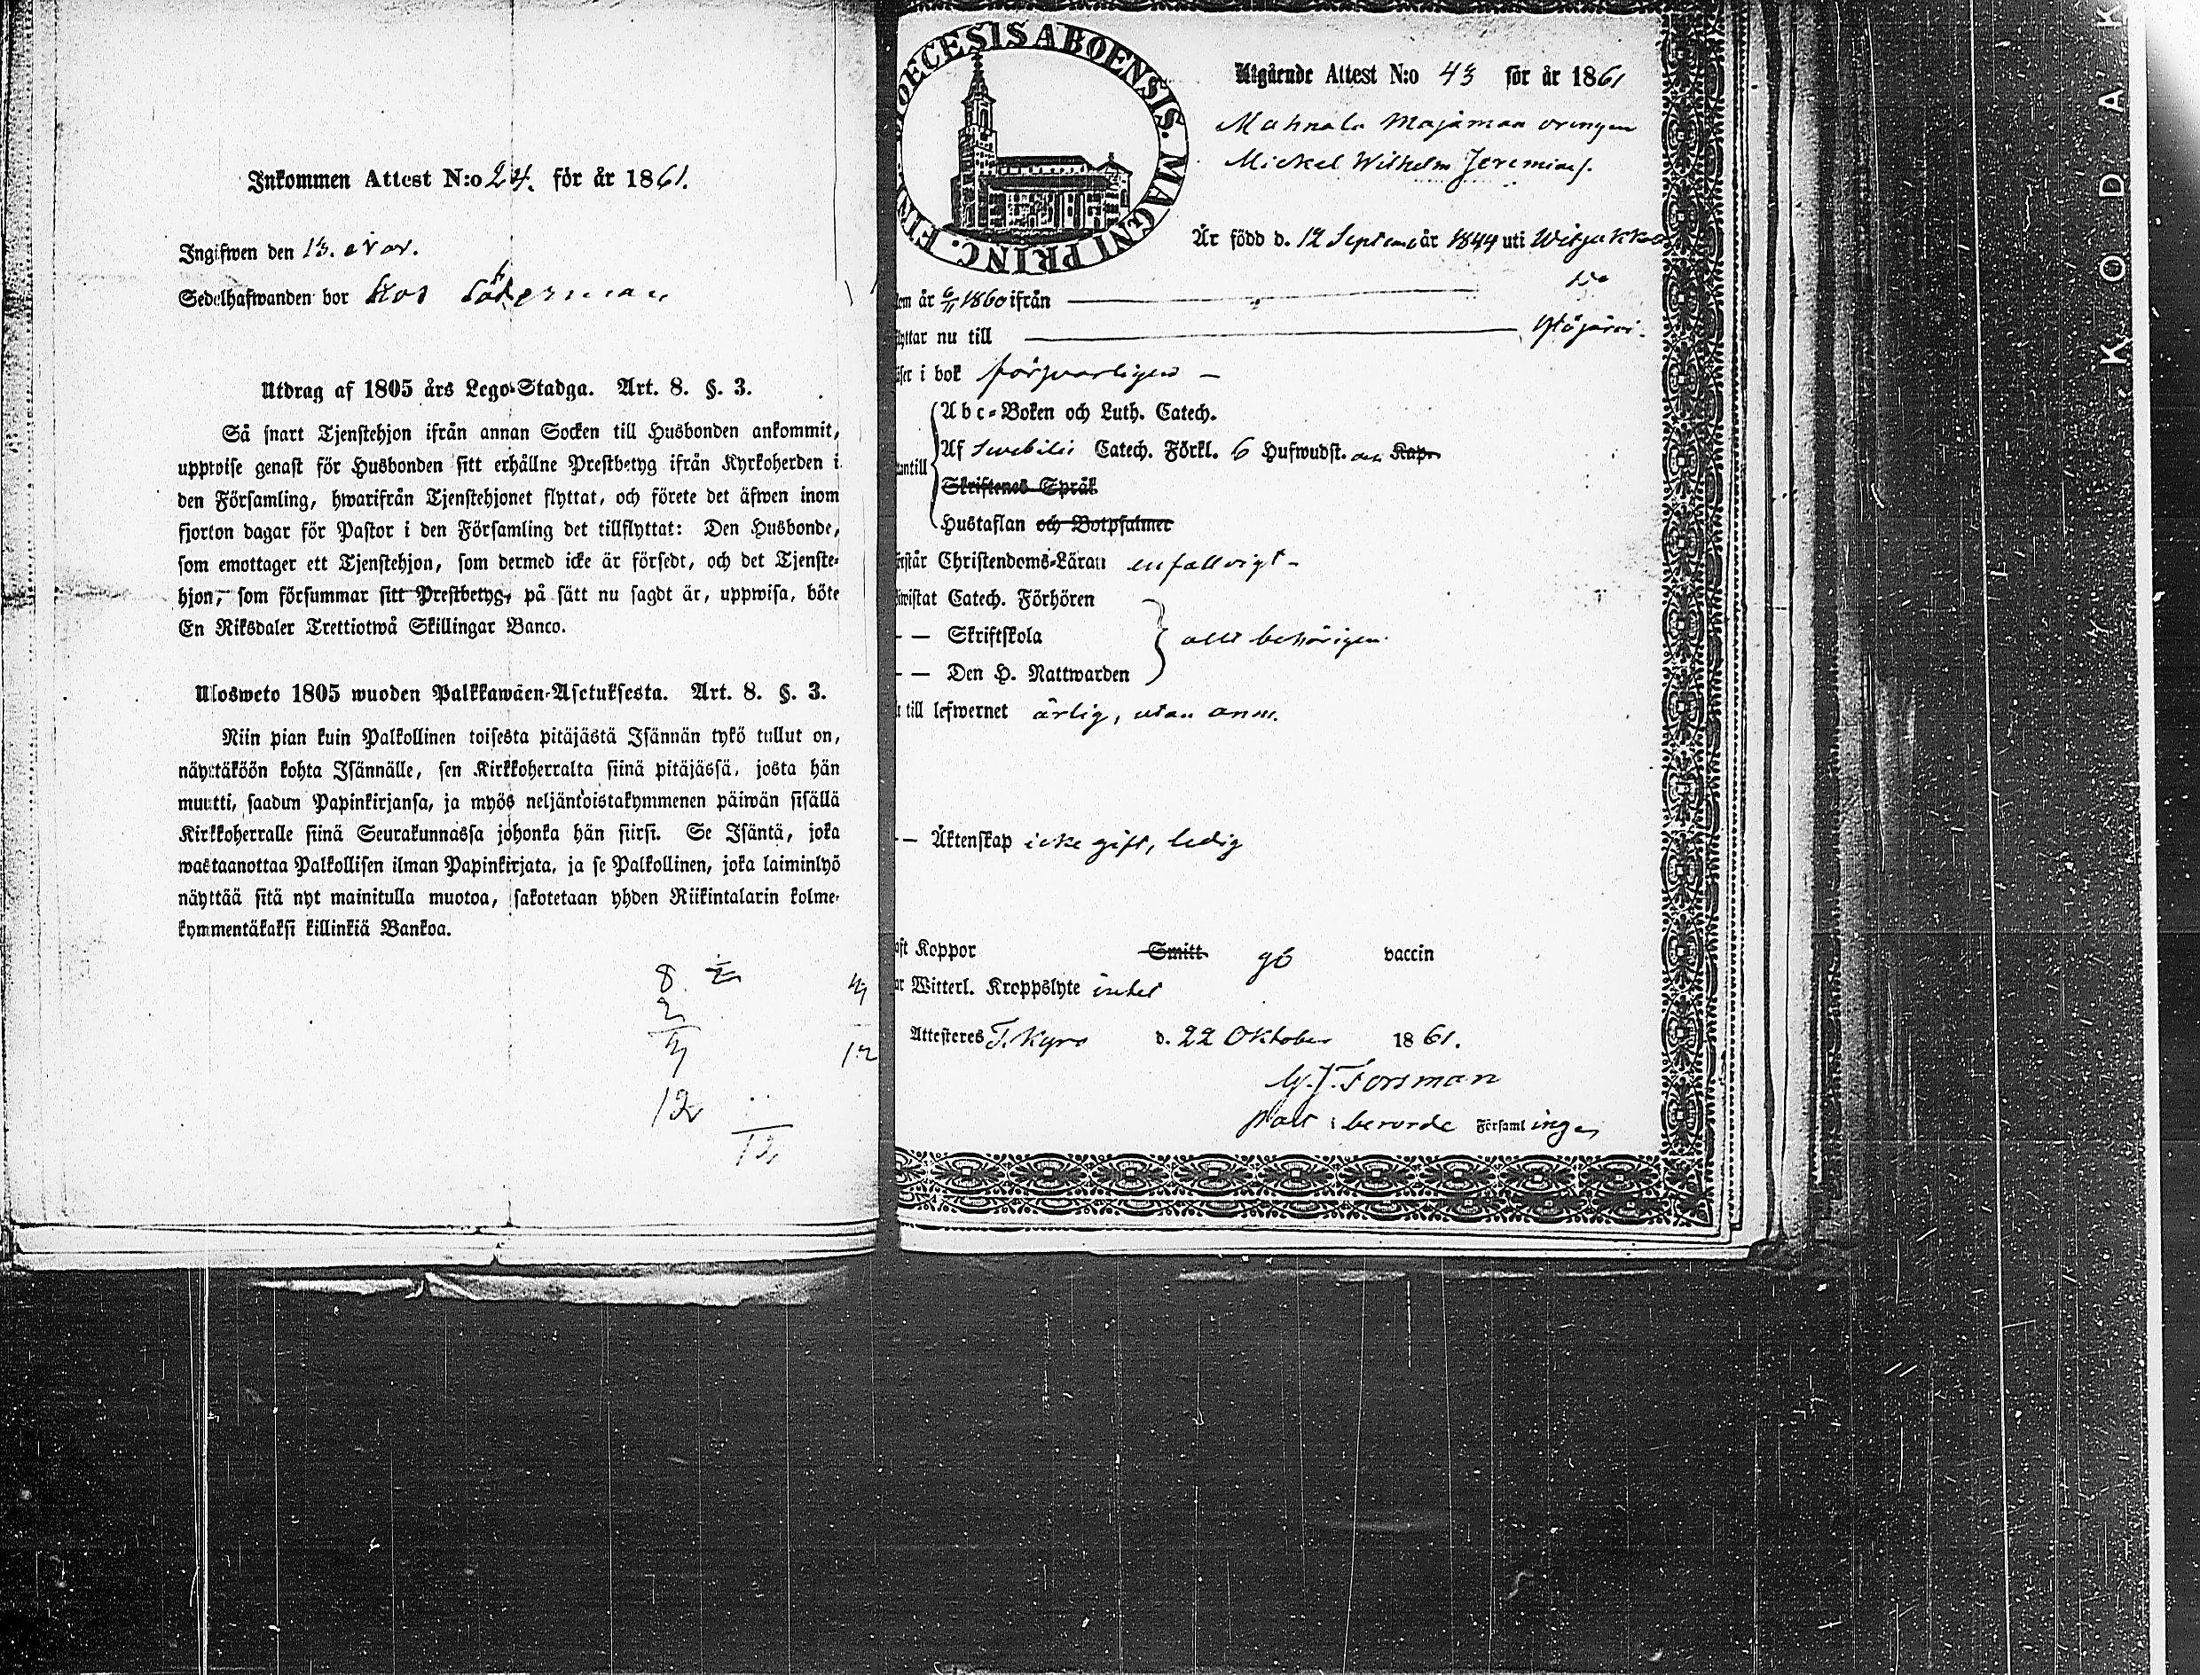 Inkommen Attest N:o 24. för år 1861.
Ingifwen den 13. Nov.
Sedelhafwanden bor hos
Utdrag af 1805 års Lego-Stadga. Art. 8. §. 3.
Så snart Tjenstehjon ifrån annan Socken till Husbonden ankommit,
uppwise genast för Husbonden sitt erhållne Prestbetyg ifrån Kyrkoherden i
den Församling, hwarifrån Tjenstehjonet flyttat, och förete det äfwen inom
fjorton dagar för Pastor i den Församling det tillflyttat: Den Husbonde,
som emottager ett Tjenstehjon, som dermed icke är försedt, och det Tjenste-
hjon, som försummar sitt Prestbetyg, på sätt nu sagdt är, uppwisa, böte
En Riksdaler Trettiotwå Skillingar Banco.
Ulosweto 1805 wuoden Palkkawäen-Asetuksesta. Art. 8. §. 3.
Niin pian kuin Palkollinen toisesta pitäjästä Isännän tykö tullut on,
näyttäköön kohta Isännälle, sen Kirkkoherralta siinä pitäjässä, josta hän
muutti, saadun Papinkirjansa, ja myös neljäntoistakymmenen päiwän sisällä
Kirkkoherralle siinä Seurakunnassa johonka hän siirsi. Se Isäntä, joka
wastaanottaa Palkollisen ilman Papinkirjata, ja se Palkollinen, joka laiminlyö
näyttää sitä nyt mainitulla muotoa, sakotetaan yhden Riikintalarin kolme-
kymmentäkaksi killinkiä Bankoa.
8
2
12
12
DIOECESIS ABOENSIS. MAGNI PRINC. FIN
Utgående Attest N:o 43 för år 1861
Mahnala Majamaa drängen
Mickel Wilhelm Jeremias.
Är född d. 12 September år 1844 uti Witjakka
la
om år 6/11 1860 ifrån
lyttar nu till Ylöjärvi.
äser i bok försvarligen –
Abc-Boken och Luth. Catech.
Af Svebilii Catech. Förkl. 6 Hufwudst. och Kap.
untill
Skriftenes Språk
Hustaflan och Botpsalmer
erstår Christendoms-Läran enfaldigt –
iwistat Catech. Förhören
– – Skriftskola allt behörigen
– – Den H. Nattwarden
t till lefwernet ärlig, utan anm.
– – Äktenskap icke gift, ledig
ft Koppor Smitt. gd vaccin
ar Witterl. Kroppslyte intet
Attesteres T. Kyro d. 22 Oktober 1861.
G. J. Forsman
past. i berörde Församlingen
KODAK